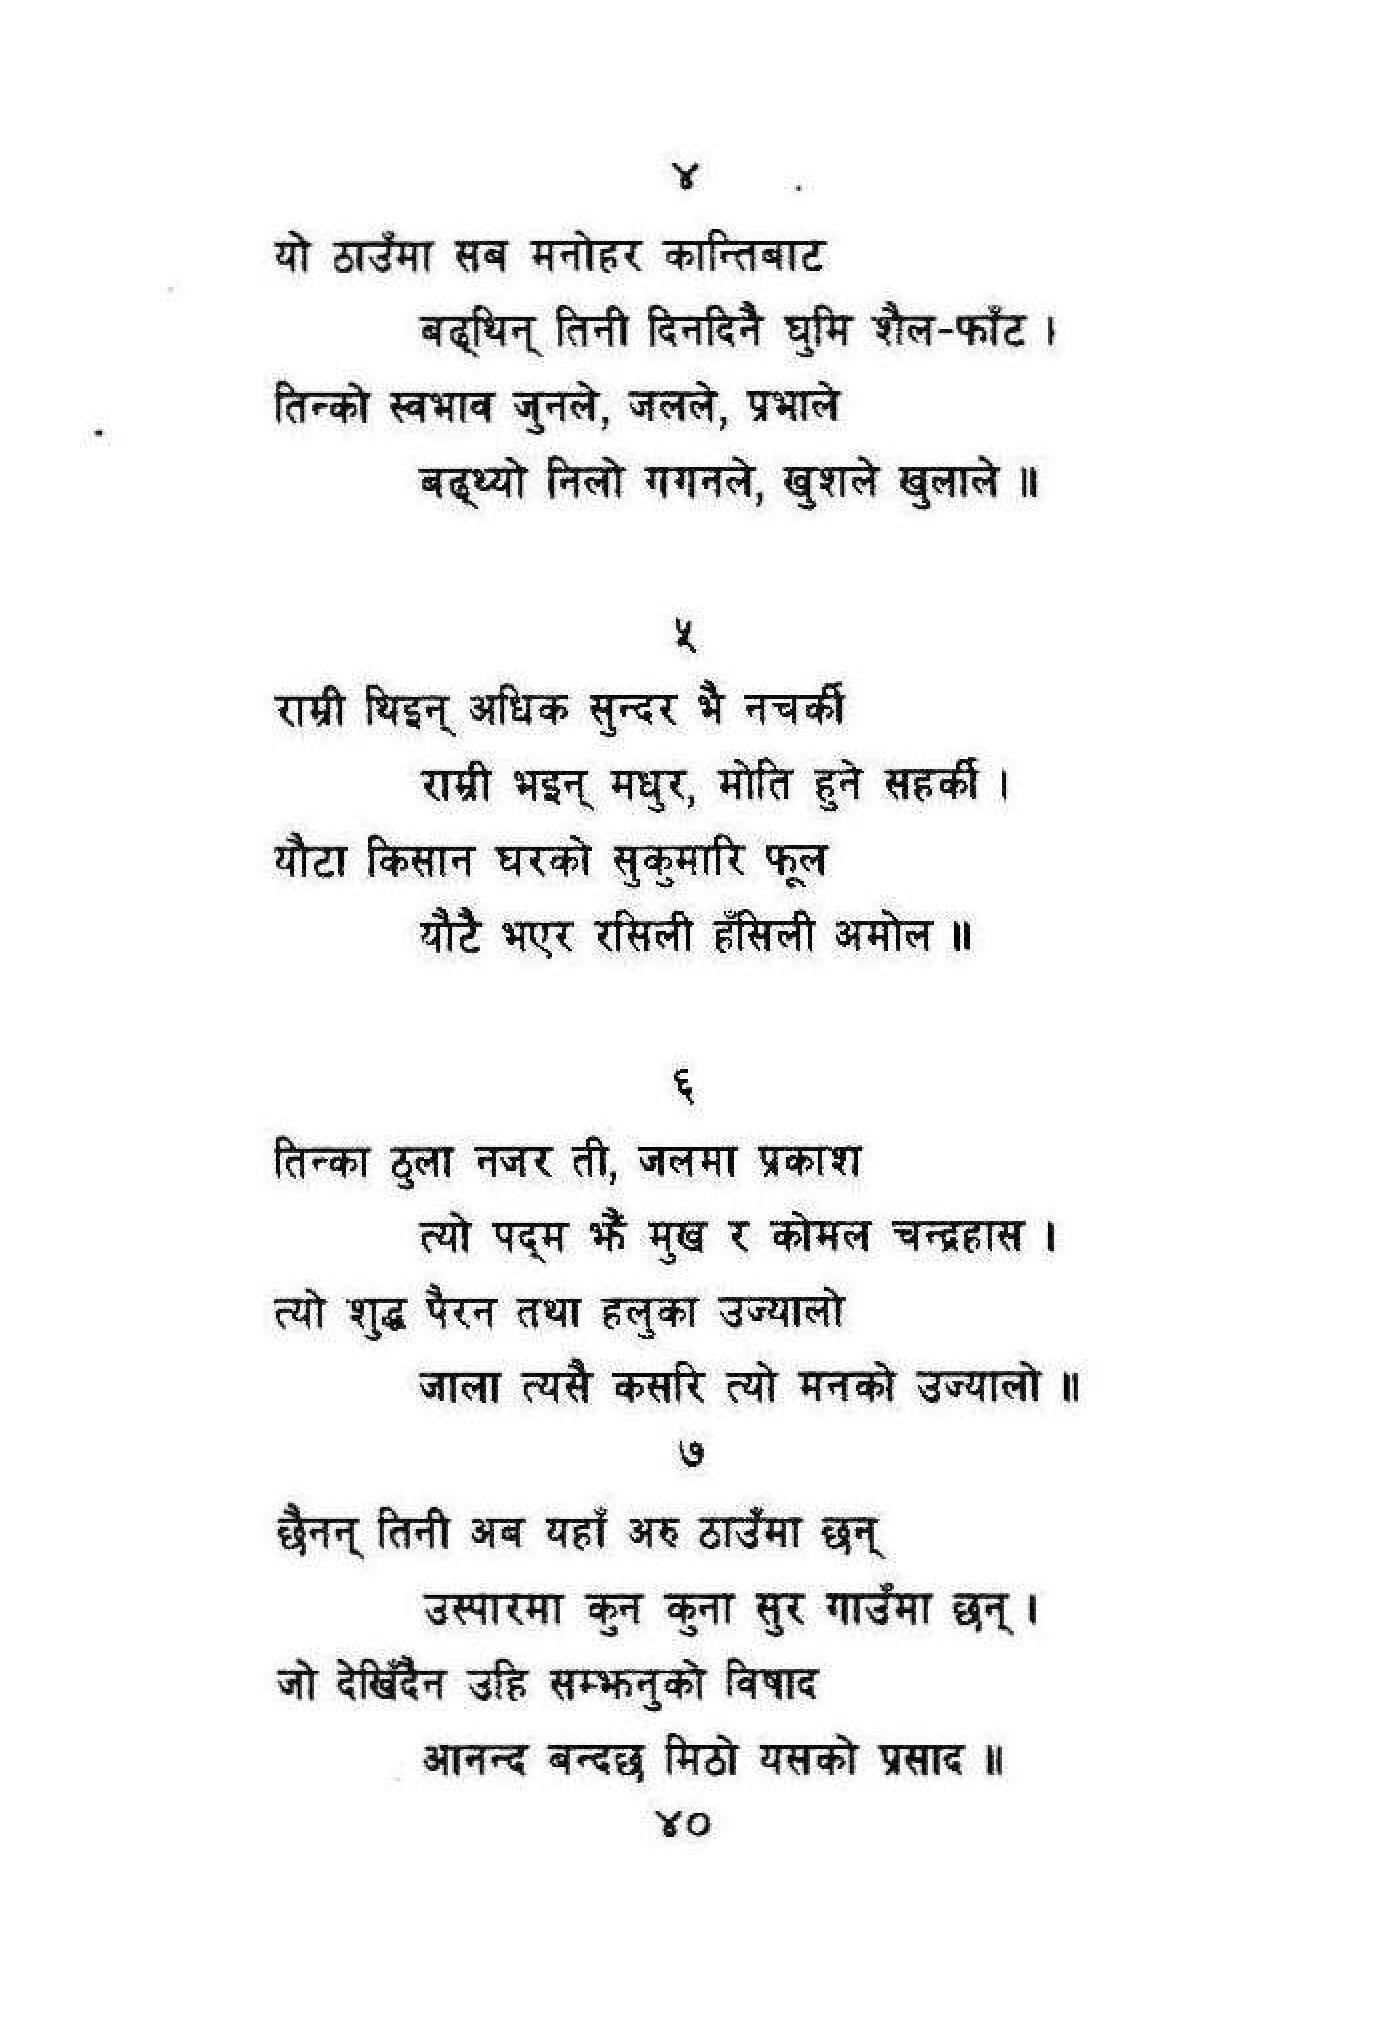 ४
यो ठाउँमा सब मनोहर कान्तिबाट
बढ्थिन् तिनी दिनदिनै घुमि शैल-फाँट ।
तिन्को स्वभाव जुनले, जलले, प्रभाले
बढ्थ्यो निलो गगनले, खुशले खुलाले ॥
५
राम्री थिइन् अधिक सुन्दर भै नचर्की
राम्री भइन् मधुर, मोति हुने सहर्की ।
यौटा किसान घरको सुकुमारि फूल
यौटै भएर रसिली हँसिली अमोल ॥
६
तिन्का ठुला नजर ती, जलमा प्रकाश
त्यो पद्म झैं मुख र कोमल चन्द्रहास ।
त्यो शुद्ध पैरन तथा हलुका उज्यालो
जाला त्यसै कसरि त्यो मनको उज्यालो ॥
७
छैनन् तिनी अब यहाँ अरु ठाउँमा छन्
उस्पारमा कुन कुना सुर गाउँमा छन् ।
जो देखिँदैन उहि सम्झनुको विषाद
आनन्द बन्दछ मिठो यसको प्रसाद ॥
४०